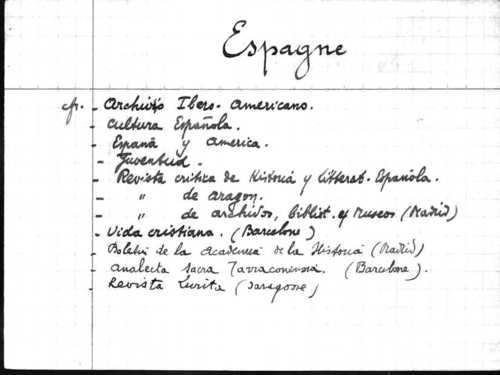 Espagne
cfr. - Archivo Ibero-Americano.
- Cultura Española.
- España y America.
- Juventud.
- Revista critica de Historia y litterat. Española.
- " de Aragon.
- " de archivos, bibliot. y Museos (Madrid)
- Vida cristiana. (Barcelone)
- Boletin de la Academia de la Historia (Madrid)
- Analecta Sacra Tarraconensia. (Barcelone).
- Revista Zurita (Saragosse)